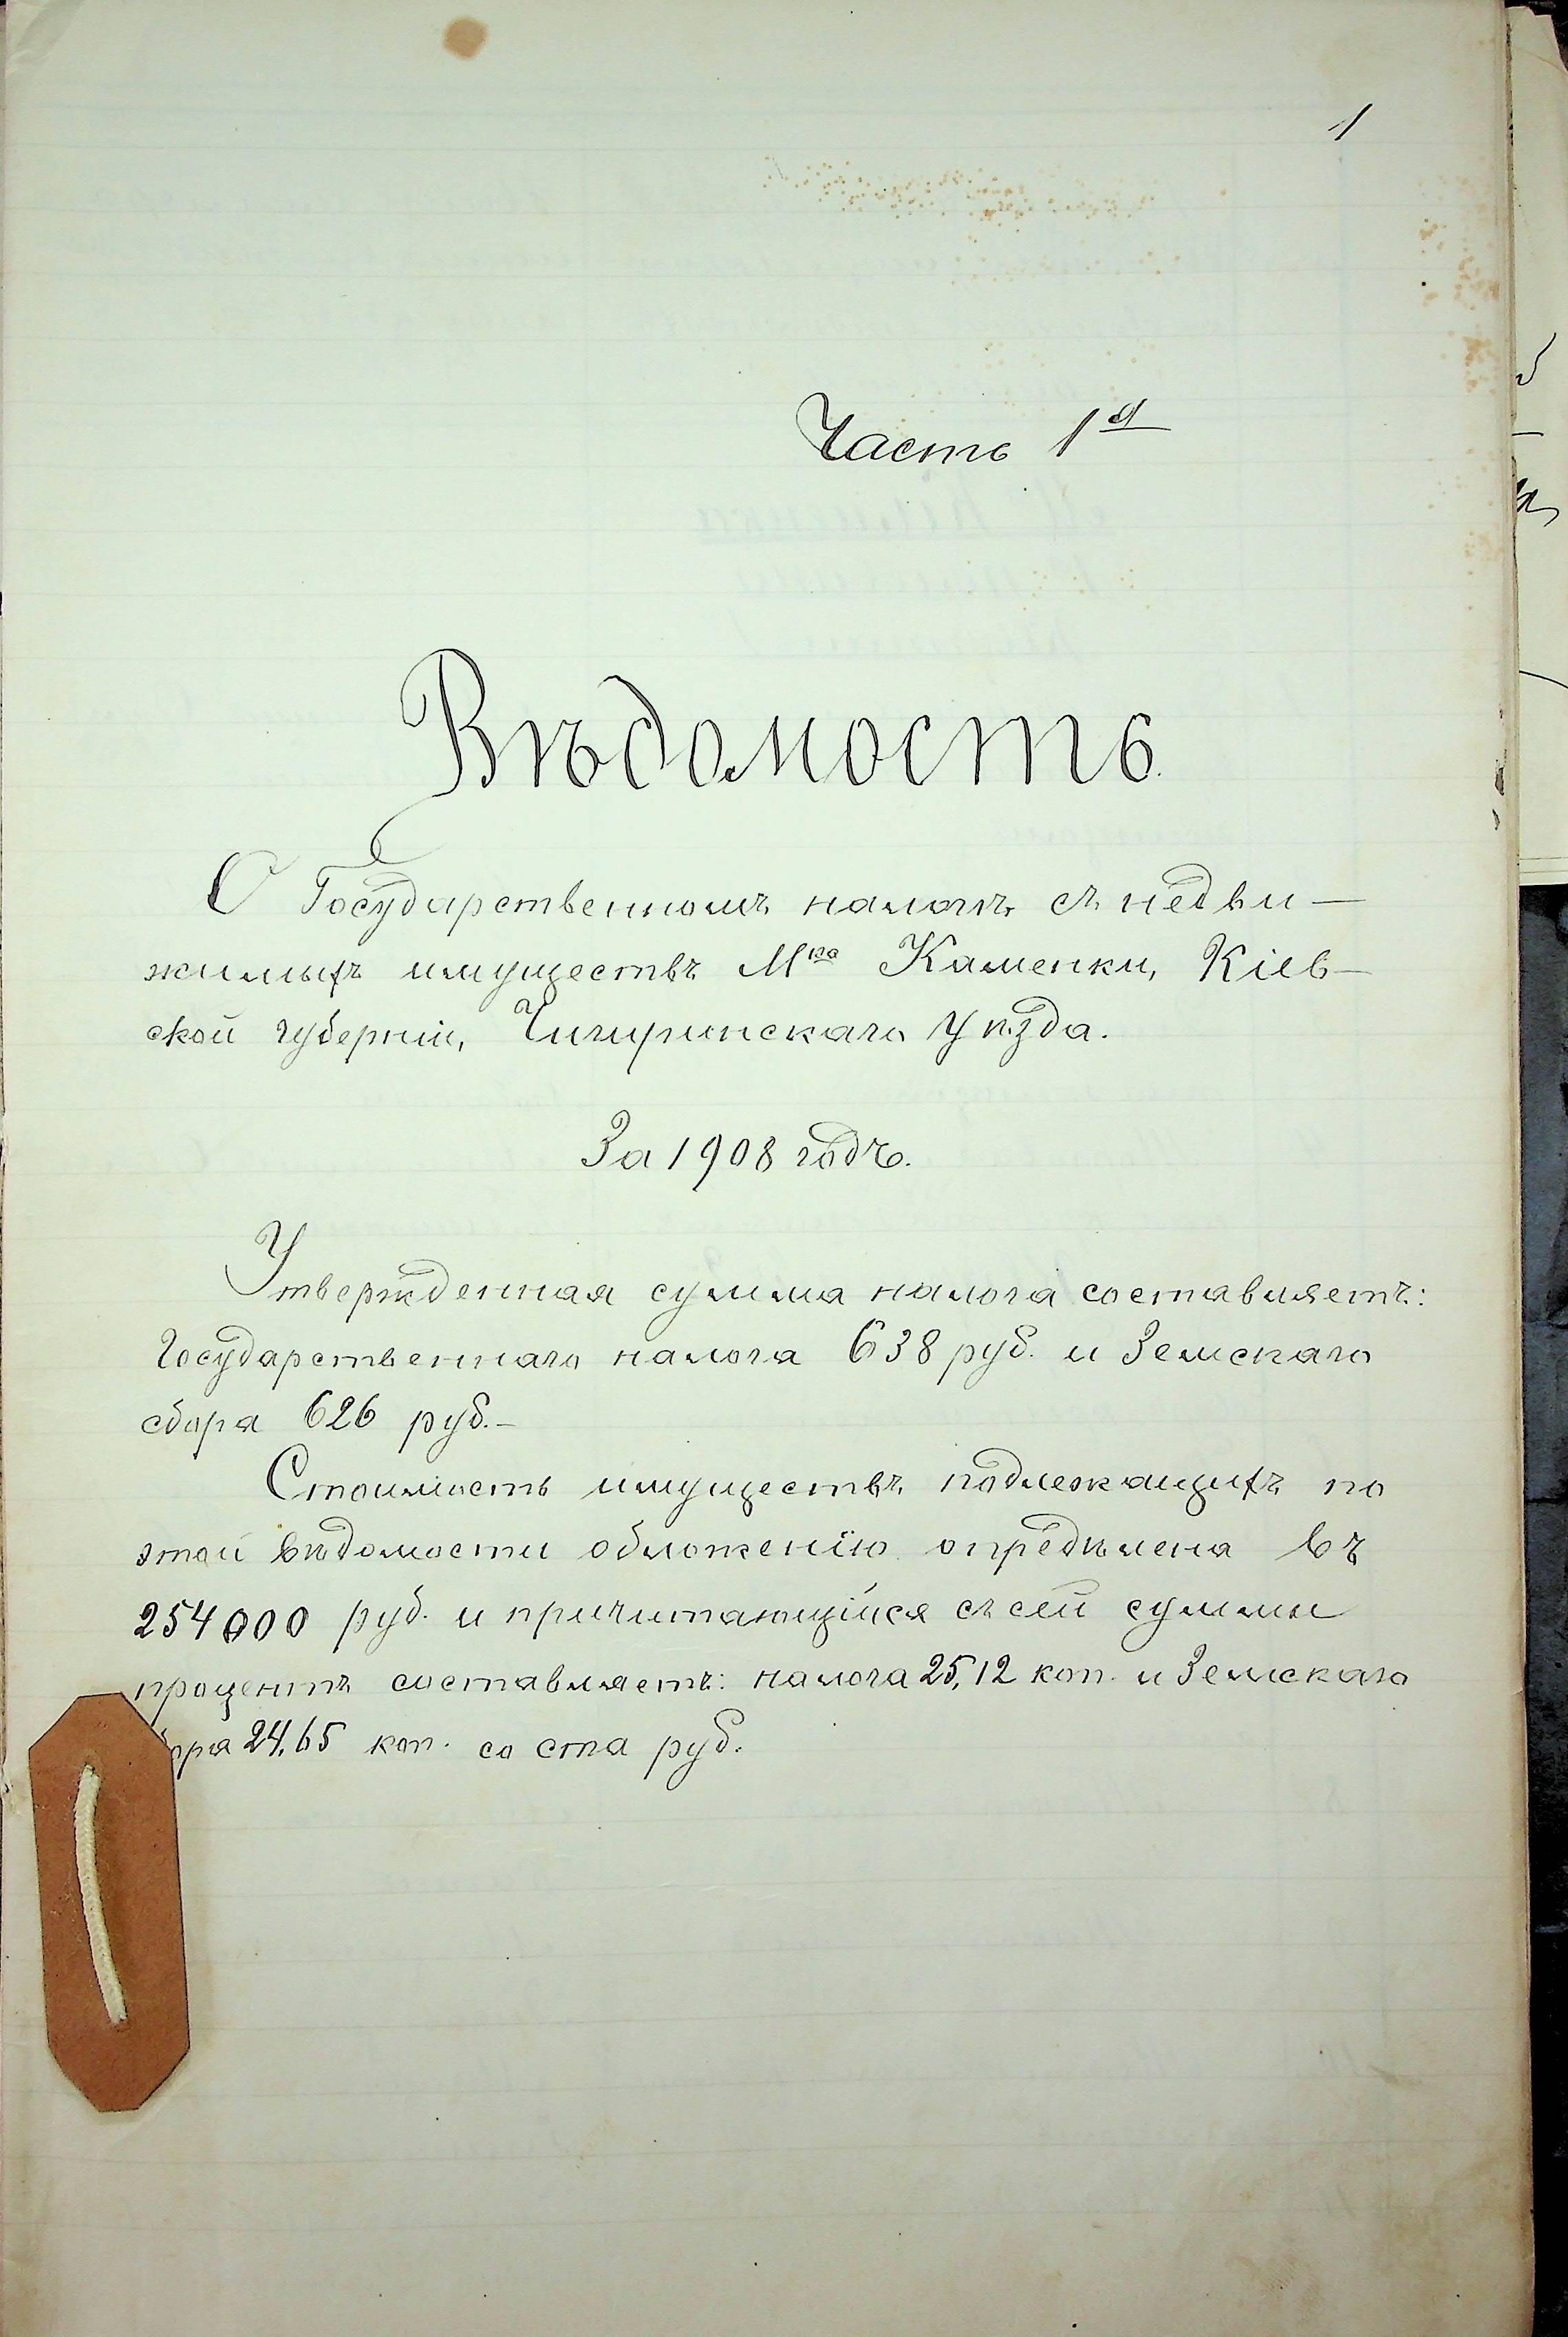 1
Часть 1ᵃя
Вѣдомость
О Государственномъ налогѣ съ недви-
жимыхъ имуществъ Мᵏᵃ Каменки, Кіев-
ской губерніи, Чигиринскаго Уѣзда.
За 1908 годъ.
Утвержденная сумма налога составляетъ:
Государственнаго налога 638 руб. и Земскаго
сбора 626 руб.-
Стоимость имуществъ подлежащихъ по
этой вѣдомости обложенію опредѣлена въ
254000 руб. и причитающійся съ сей суммы
процентъ составляетъ: налога 25,12 коп. и Земскаго
бора 24,65 коп. со ста руб.